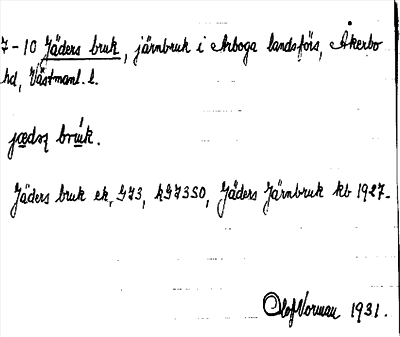 7-10 Jäders bruk, järnbruk i Arboga landsförs, Åkerbo
hd, Västmanl. l.
jædʂ brúk.
Jäders bruk ek, GJ3, Jäders Järnbruk kb 1927-
Olof Vorman 1931.